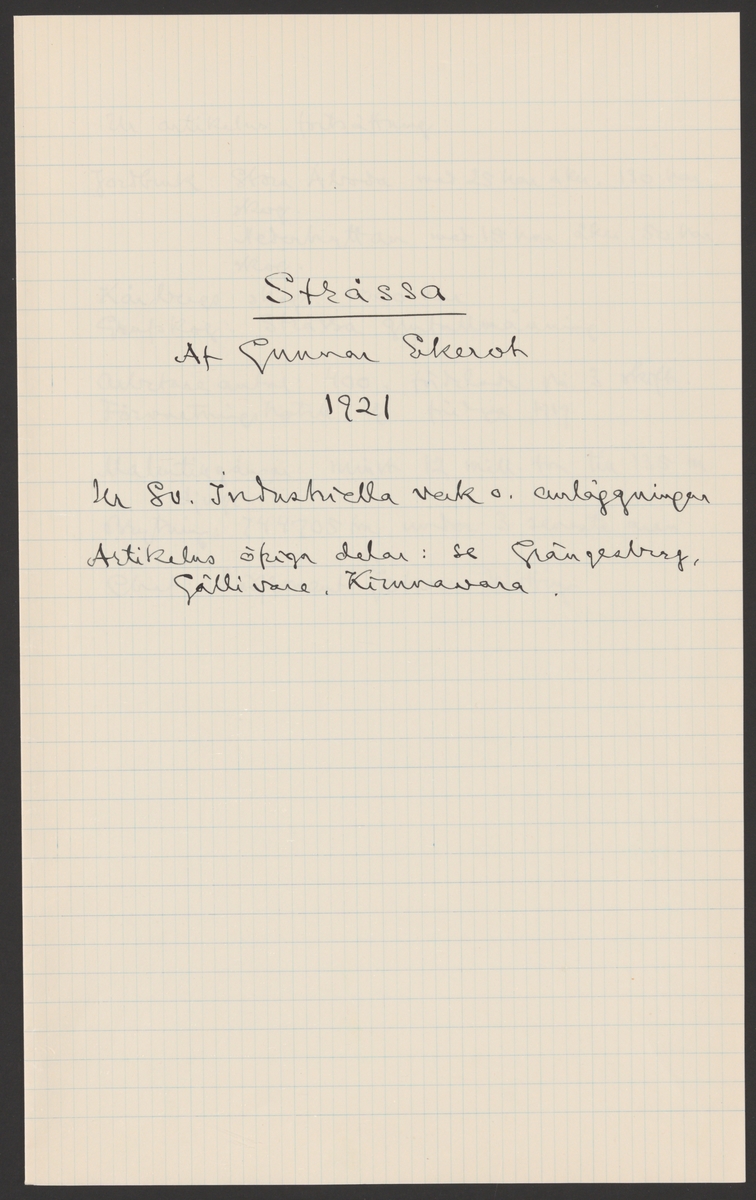 Stråssa
Af Gunnar Ekeroth
1921
Ur Sv. Industriella verk o. anläggningar
Artikelns öfriga delar: se Grängesberg,
Gällivare, Kirunavara.